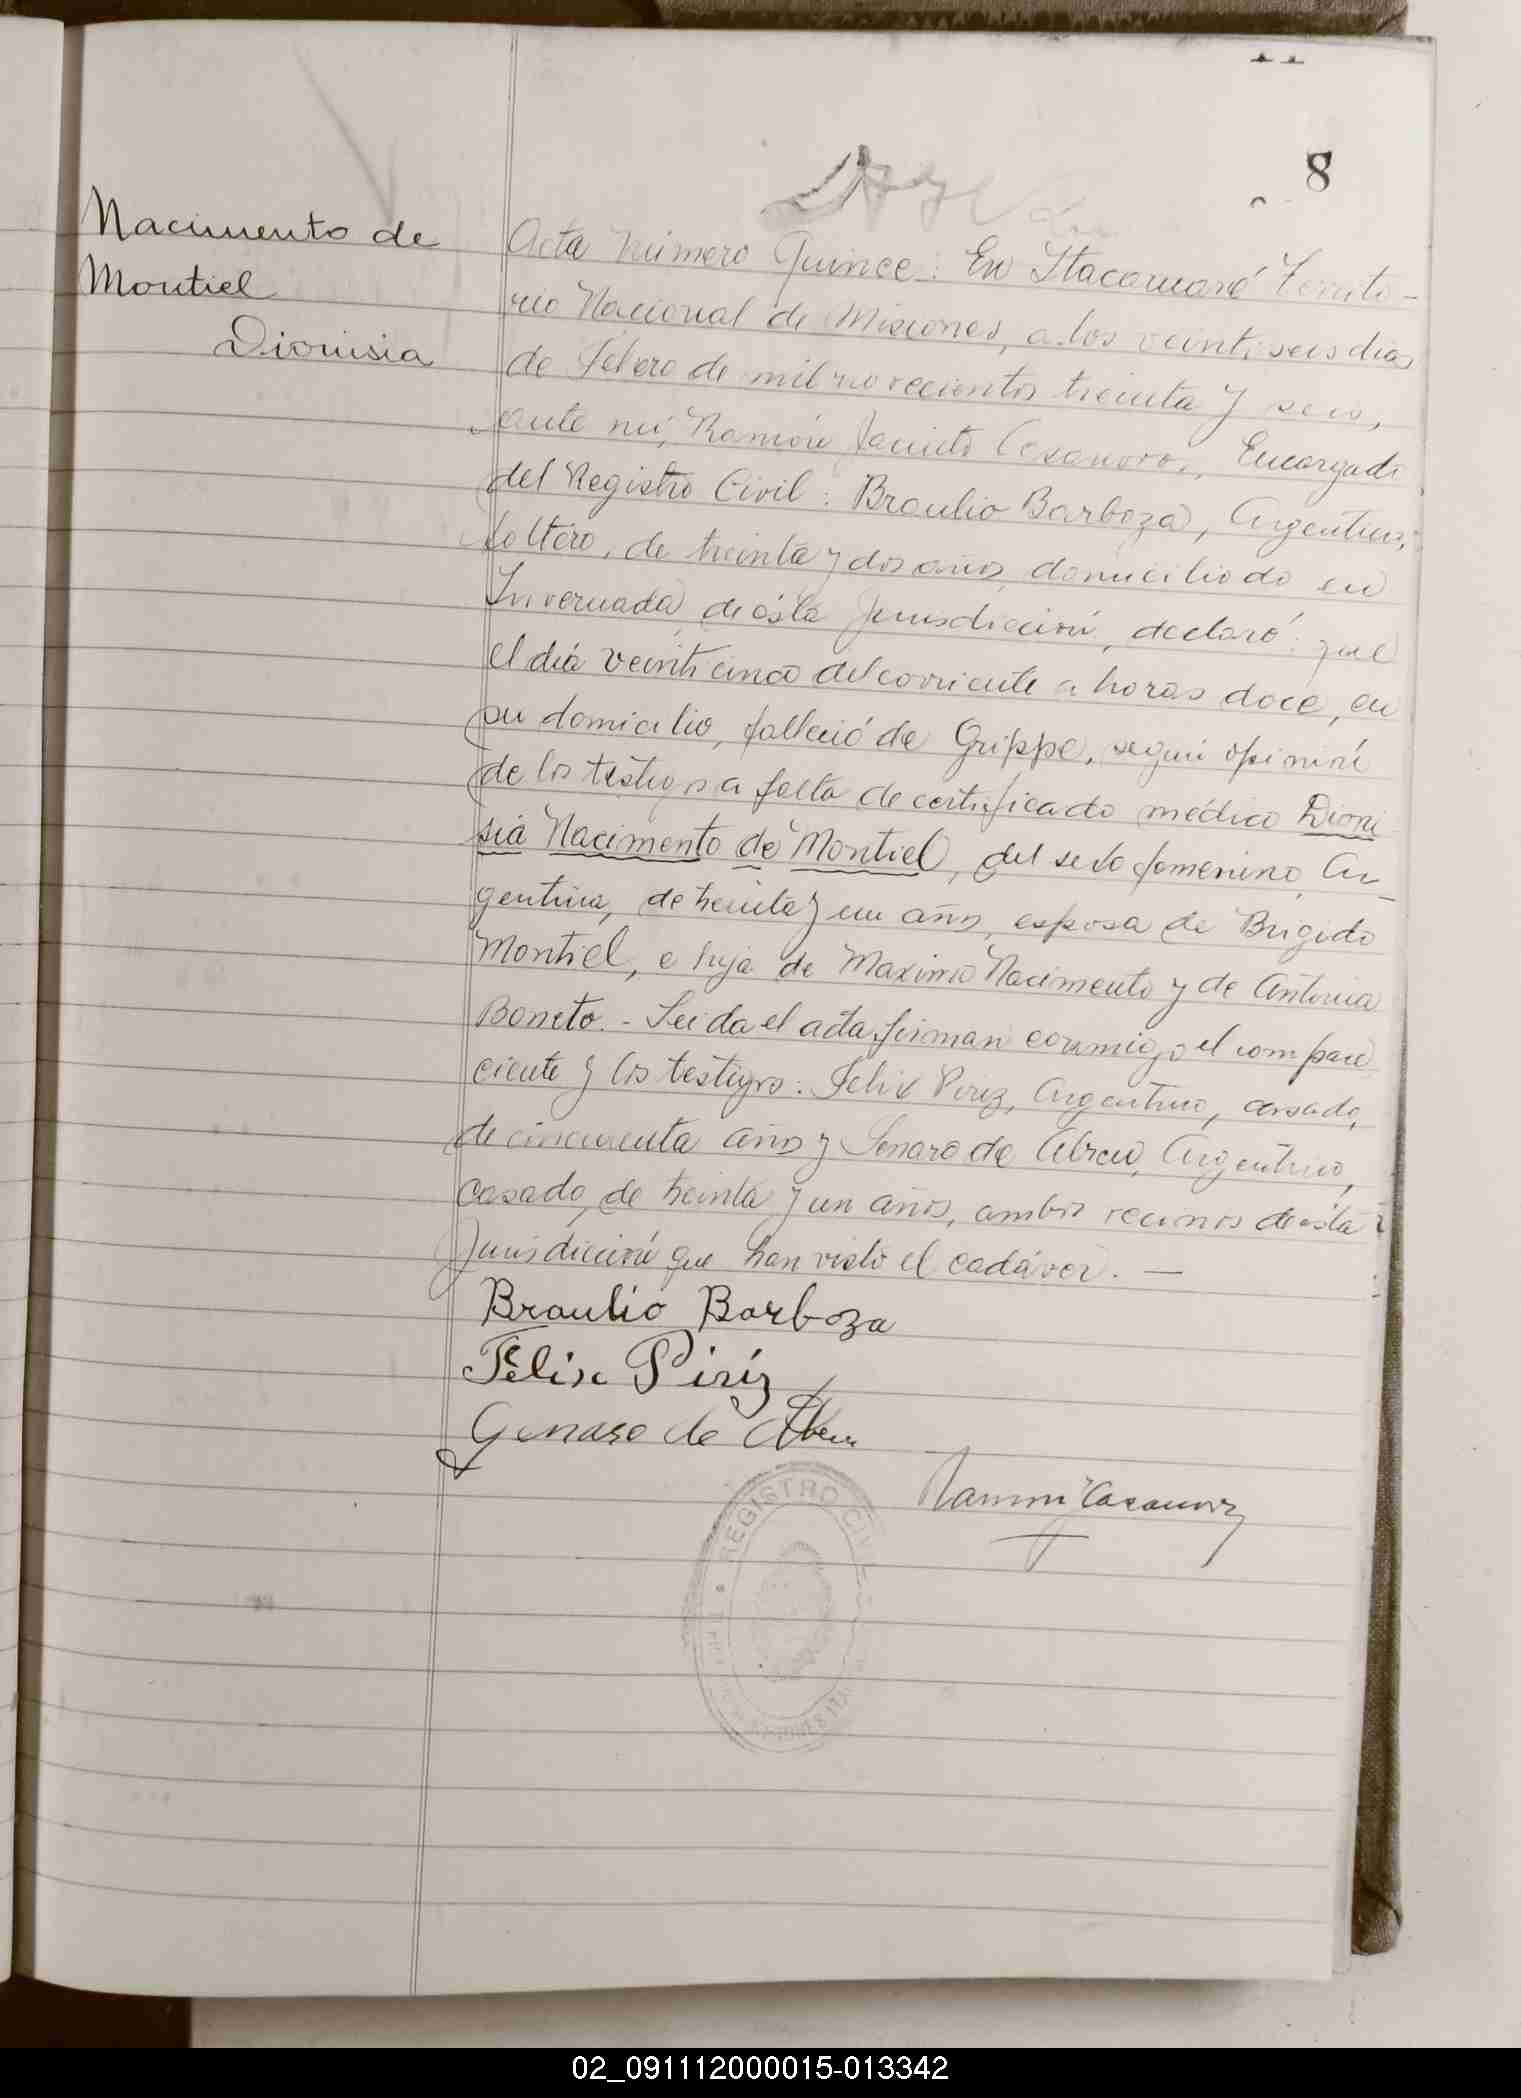 8
Nacimento de
Montiel
Dionisia
Acta Número Quince: En Itacaruaré Territo-
rio Nacional de Misiones, a los veintiseis dias
de Febrero de mil novecientos treinta y seis,
ante mí, Ramón Jacinto Casanova, Encargado
del Registro Civil: Braulio Barboza, Argentino,
soltéro, de treinta y dos años, domiciliado en
Invernada, de ésta Jurisdicción, declaró: que
el día veinticinco del corriente a horas doce, en
su domicilio, falleció de Grippe, según opinión
de los testigos a falta de certificado médico Dioni
sia Nacimento de Montiel, del sexo femenino, Ar-
gentina, de treinta y un años, esposa de Brigido
Montiel, e hija de Maximo Nacimento y de Antonia
Boneto. - Leida el acta, firman conmigo el compare
ciente y los testigos: Felix Piriz, Argentino, casado,
de cincuenta años y Jenaro de Abreu, Argentino,
casado, de treinta y un años, ambos vecinos de ésta
Jurisdicción que han visto el cadáver. —
Braulio Barboza
Felix Piriz
Genaro de Abreu
Ramón J Casanova
REGISTRO CIVIL
02_091112000015-013342